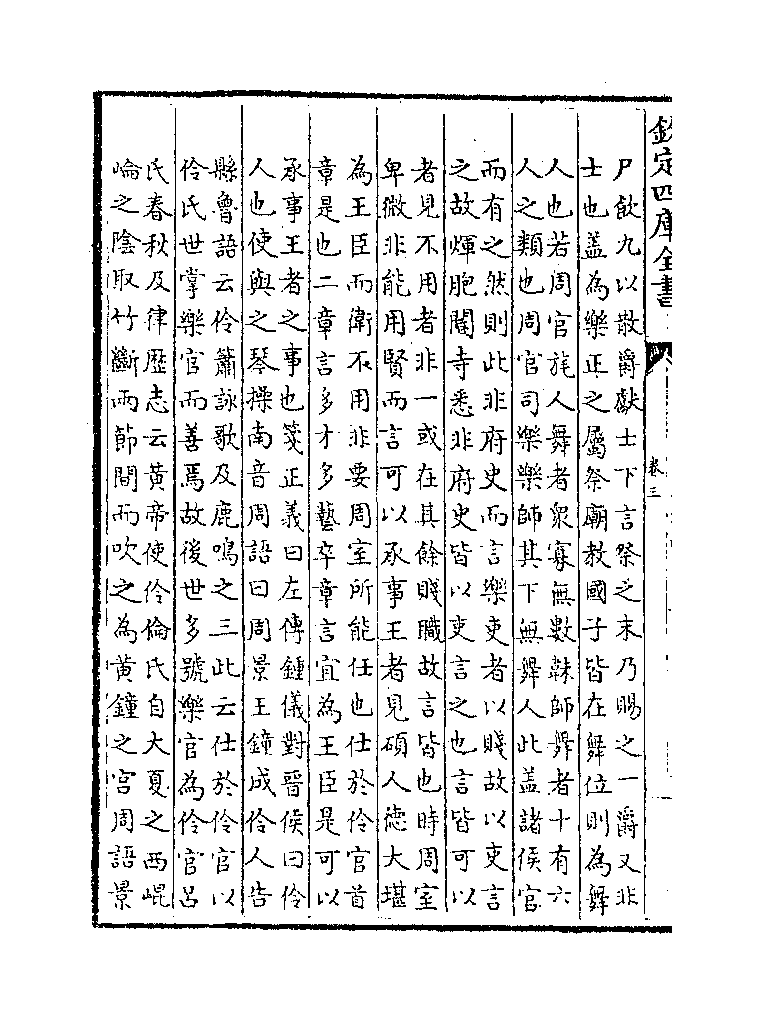 欽定四庫全書
卷三
尸飲九以散爵獻士下言祭之末乃賜之一爵又非
士也蓋為樂正之屬祭廟教國子皆在舞位則為舞
人也若周官旄人舞者衆寡無數韎師舞者十有六
人之類也周官司樂樂師其下無舞人此蓋諸侯官
而有之然則此非府史而言樂吏者以賤故以吏言
之故煇胞閽寺悉非府史皆以吏言之也言皆可以
者見不用者非一或在其餘賤職故言皆也時周室
卑微非能用賢而言可以承事王者見碩人德大堪
為王臣而衛不用非要周室所能任也仕於伶官首
章是也二章言多才多藝卒章言宜為王臣是可以
承事王者之事也箋正義曰左傳鍾儀對晉侯曰伶
人也使與之琴操南音周語曰周景王鐘成伶人告
縣魯語云伶簫詠歌及鹿鳴之三此云仕於伶官以
伶氏世掌樂官而善焉故後世多號樂官為伶官呂
氏春秋及律歴志云黄帝使伶倫氏自大夏之西崐
崘之陰取竹斷兩節間而吹之為黄鐘之宫周語景